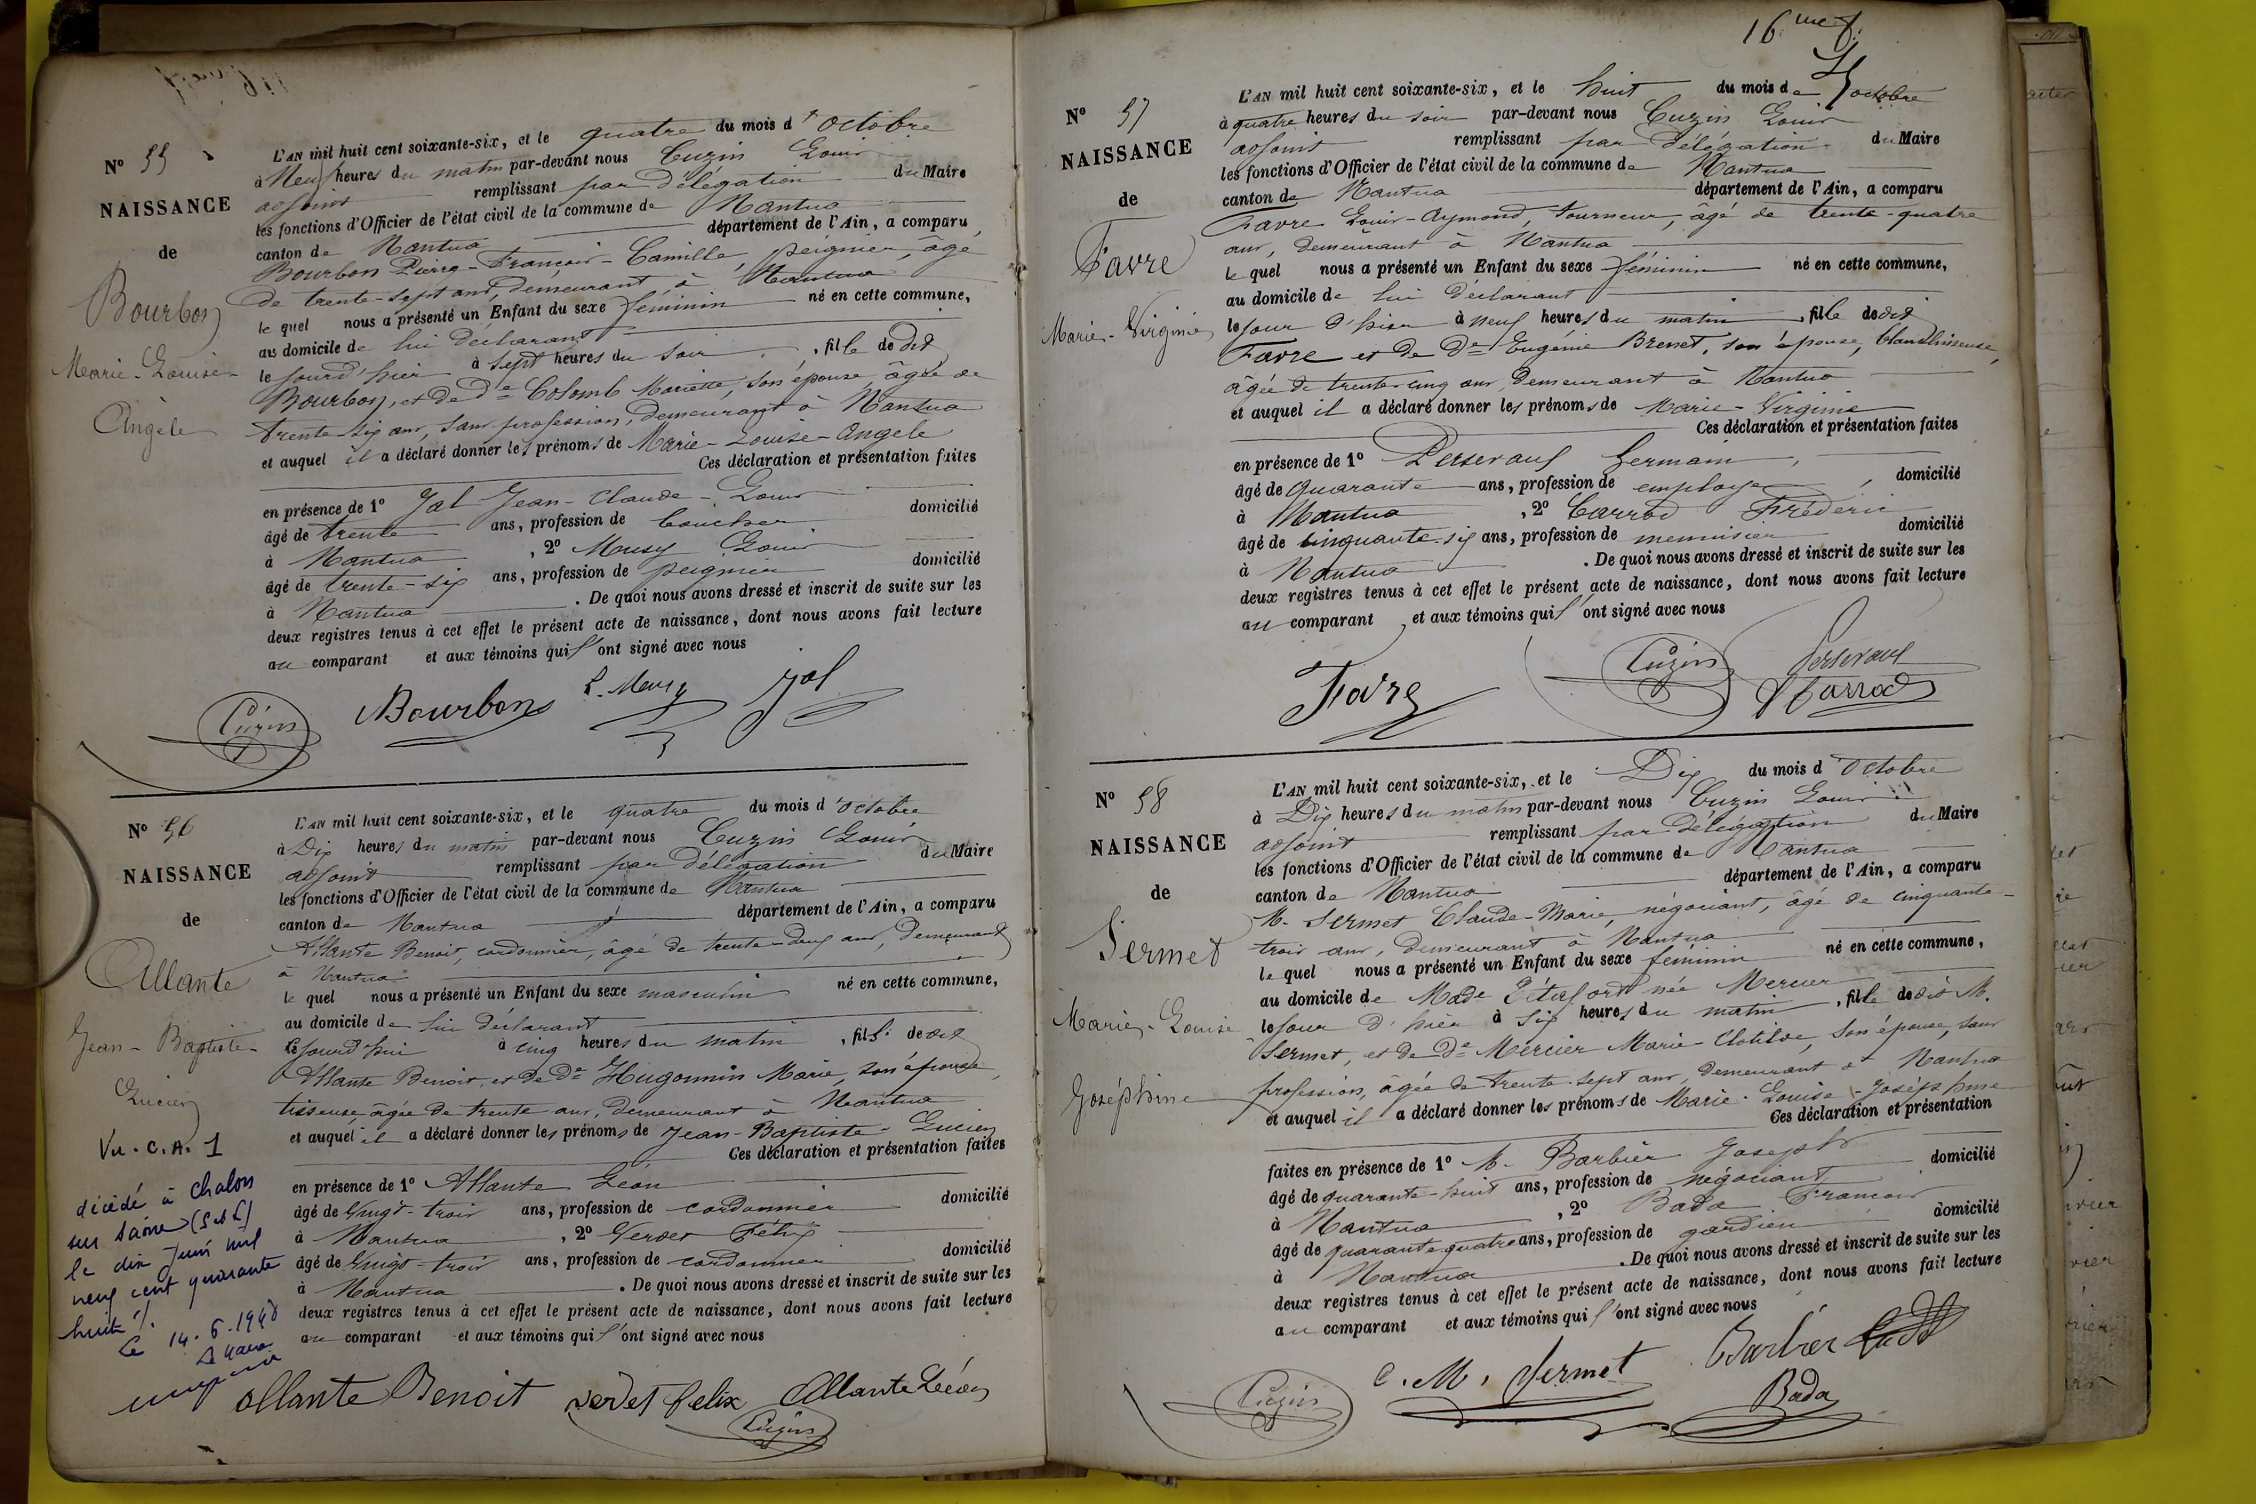 Nº 55
NAISSANCE
de
Bourbon
Marie-Louise-
Angèle
L'AN mil huit cent soixante-six, et le quatre du mois d'octobre
à Neuf heures du matin par-devant nous Cuzin Louis
adjoint remplissant par Délégation du Maire
les fonctions d'Officier de l'état civil de la commune de Nantua
canton de Nantua département de l'Ain, a comparu
Bourbon Pierre-François-Camille, peignier, âgé
de trente-sept ans, demeurant à Nantua
le quel nous a présenté un Enfant du sexe féminin né en cette commune,
au domicile de lui déclarant
le jourd'hier à sept heures du soir, fille de dit
Bourbon, et de De Colomb Mariette, son épouse âgée de
trente-six ans, sans profession, demeurant à Nantua
et auquel il a déclaré donner les prénoms de Marie-Louise-Angèle
Ces déclaration et présentation faites
en présence de 1º Jal Jean-Claude-Louis
âgé de trente ans, profession de boucher domicilié
à Nantua, 2º Meusy Louis
âgé de trente-six ans, profession de peignier domicilié
à Nantua. De quoi nous avons dressé et inscrit de suite sur les
deux registres tenus à cet effet le présent acte de naissance, dont nous avons fait lecture
au comparant et aux témoins qui l'ont signé avec nous
Cuzin Bourbon L. Meusy Jal
Nº 56
NAISSANCE
de
Allante
Jean-Baptiste-
Lucien
Vu. C.A. 1
décédé à Chalon
sur Saône (S et L)
le dix juin mil
neuf cent quarante
huit ./.
Le 14.6.1948
L'AN mil huit cent soixante-six, et le quatre du mois d'octobre
à Dix heures du matin par-devant nous Cuzin Louis
adjoint remplissant par Délégation du Maire
les fonctions d'Officier de l'état civil de la commune de Nantua
canton de Nantua département de l'Ain, a comparu
Allante Benoit, cordonnier, âgé de trente-deux ans, demeurant
à Nantua
le quel nous a présenté un Enfant du sexe masculin né en cette commune,
au domicile de lui déclarant
le jourd'hui à cinq heures du matin, fils de dit
Allante Benoit, et de De Hugonnin Marie, son épouse,
tisseuse, âgée de trente ans, demeurant à Nantua
et auquel il a déclaré donner les prénoms de Jean-Baptiste-Lucien
Ces déclaration et présentation faites
en présence de 1º Allante Léon
âgé de vingt-trois ans, profession de cordonnier domicilié
à Nantua, 2º Verdet Félix
âgé de vingt-trois ans, profession de cordonnier domicilié
à Nantua. De quoi nous avons dressé et inscrit de suite sur les
deux registres tenus à cet effet le présent acte de naissance, dont nous avons fait lecture
au comparant et aux témoins qui l'ont signé avec nous
Allante Benoit Verdet felix Allante Léon
Cuzin
16me f.
Nº 57
NAISSANCE
de
Favre
Marie-Virginie
L'AN mil huit cent soixante-six, et le huit du mois d'octobre
à quatre heures du soir par-devant nous Cuzin Louis
adjoint remplissant par Délégation du Maire
les fonctions d'Officier de l'état civil de la commune de Nantua
canton de Nantua département de l'Ain, a comparu
Favre Louis-Aymond, tourneur, âgé de trente-quatre
ans, demeurant à Nantua
le quel nous a présenté un Enfant du sexe féminin né en cette commune,
au domicile de lui déclarant
le jour d'hier à neuf heures du matin, fille de dit
Favre et de De Eugénie Brenet, son épouse, blanchisseuse,
âgée de trente-cinq ans demeurant à Nantua
et auquel il a déclaré donner les prénoms de Marie-Virginie
Ces déclaration et présentation faites
en présence de 1º Perseraul Germain,
âgé de quarante ans, profession de employé, domicilié
à Nantua, 2º Carrod Frédéric
âgé de cinquante-six ans, profession de menuisier domicilié
à Nantua. De quoi nous avons dressé et inscrit de suite sur les
deux registres tenus à cet effet le présent acte de naissance, dont nous avons fait lecture
au comparant, et aux témoins qui l'ont signé avec nous
Favre Cuzin Perseraul
Carrod
Nº 58
NAISSANCE
de
Sermet
Marie-Louise
Joséphine
L'AN mil huit cent soixante-six, et le Dix du mois d'octobre
à Dix heures du matin par-devant nous Cuzin Louis
adjoint remplissant par Délégation du Maire
les fonctions d'Officier de l'état civil de la commune de Nantua
canton de Nantua département de l'Ain, a comparu
M. Sermet Claude-Marie, négociant, âgé de cinquante-
trois ans, demeurant à Nantua
le quel nous a présenté un Enfant du sexe féminin né en cette commune,
au domicile de Made née Mercier
le jour d'hier à six heures du matin, fille de dit M.
Sermet, et de De Mercier Marie-Clotilde, son épouse, sans
profession, âgée de trente-sept ans, demeurant à Nantua
et auquel il a déclaré donner les prénoms de Marie-Louise Joséphine
Ces déclaration et présentation
faites en présence de 1º M. Barbier Joseph
âgé de quarante-huit ans, profession de négociant domicilié
à Nantua, 2º Bada François
âgé de quarante quatre ans, profession de gardien domicilié
à Nantua. De quoi nous avons dressé et inscrit de suite sur les
deux registres tenus à cet effet le présent acte de naissance, dont nous avons fait lecture
au comparant et aux témoins qui l'ont signé avec nous
Cuzin C. M. Sermet Barbier
Bada